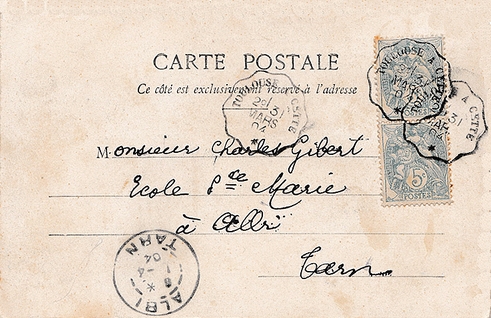 CARTE POSTALE
Ce côté est exclusivement réservé à l'adresse
TOULOUSE A CETTE
2E/
31
MARS
04
TOULOUSE A CETTE
31
MARS
04
A CETTE
31
MARS
04
5c
POSTES
Monsieur Charles Gibert
Ecole Ste Marie
à Albi
Tarn
ALBI
TARN
04